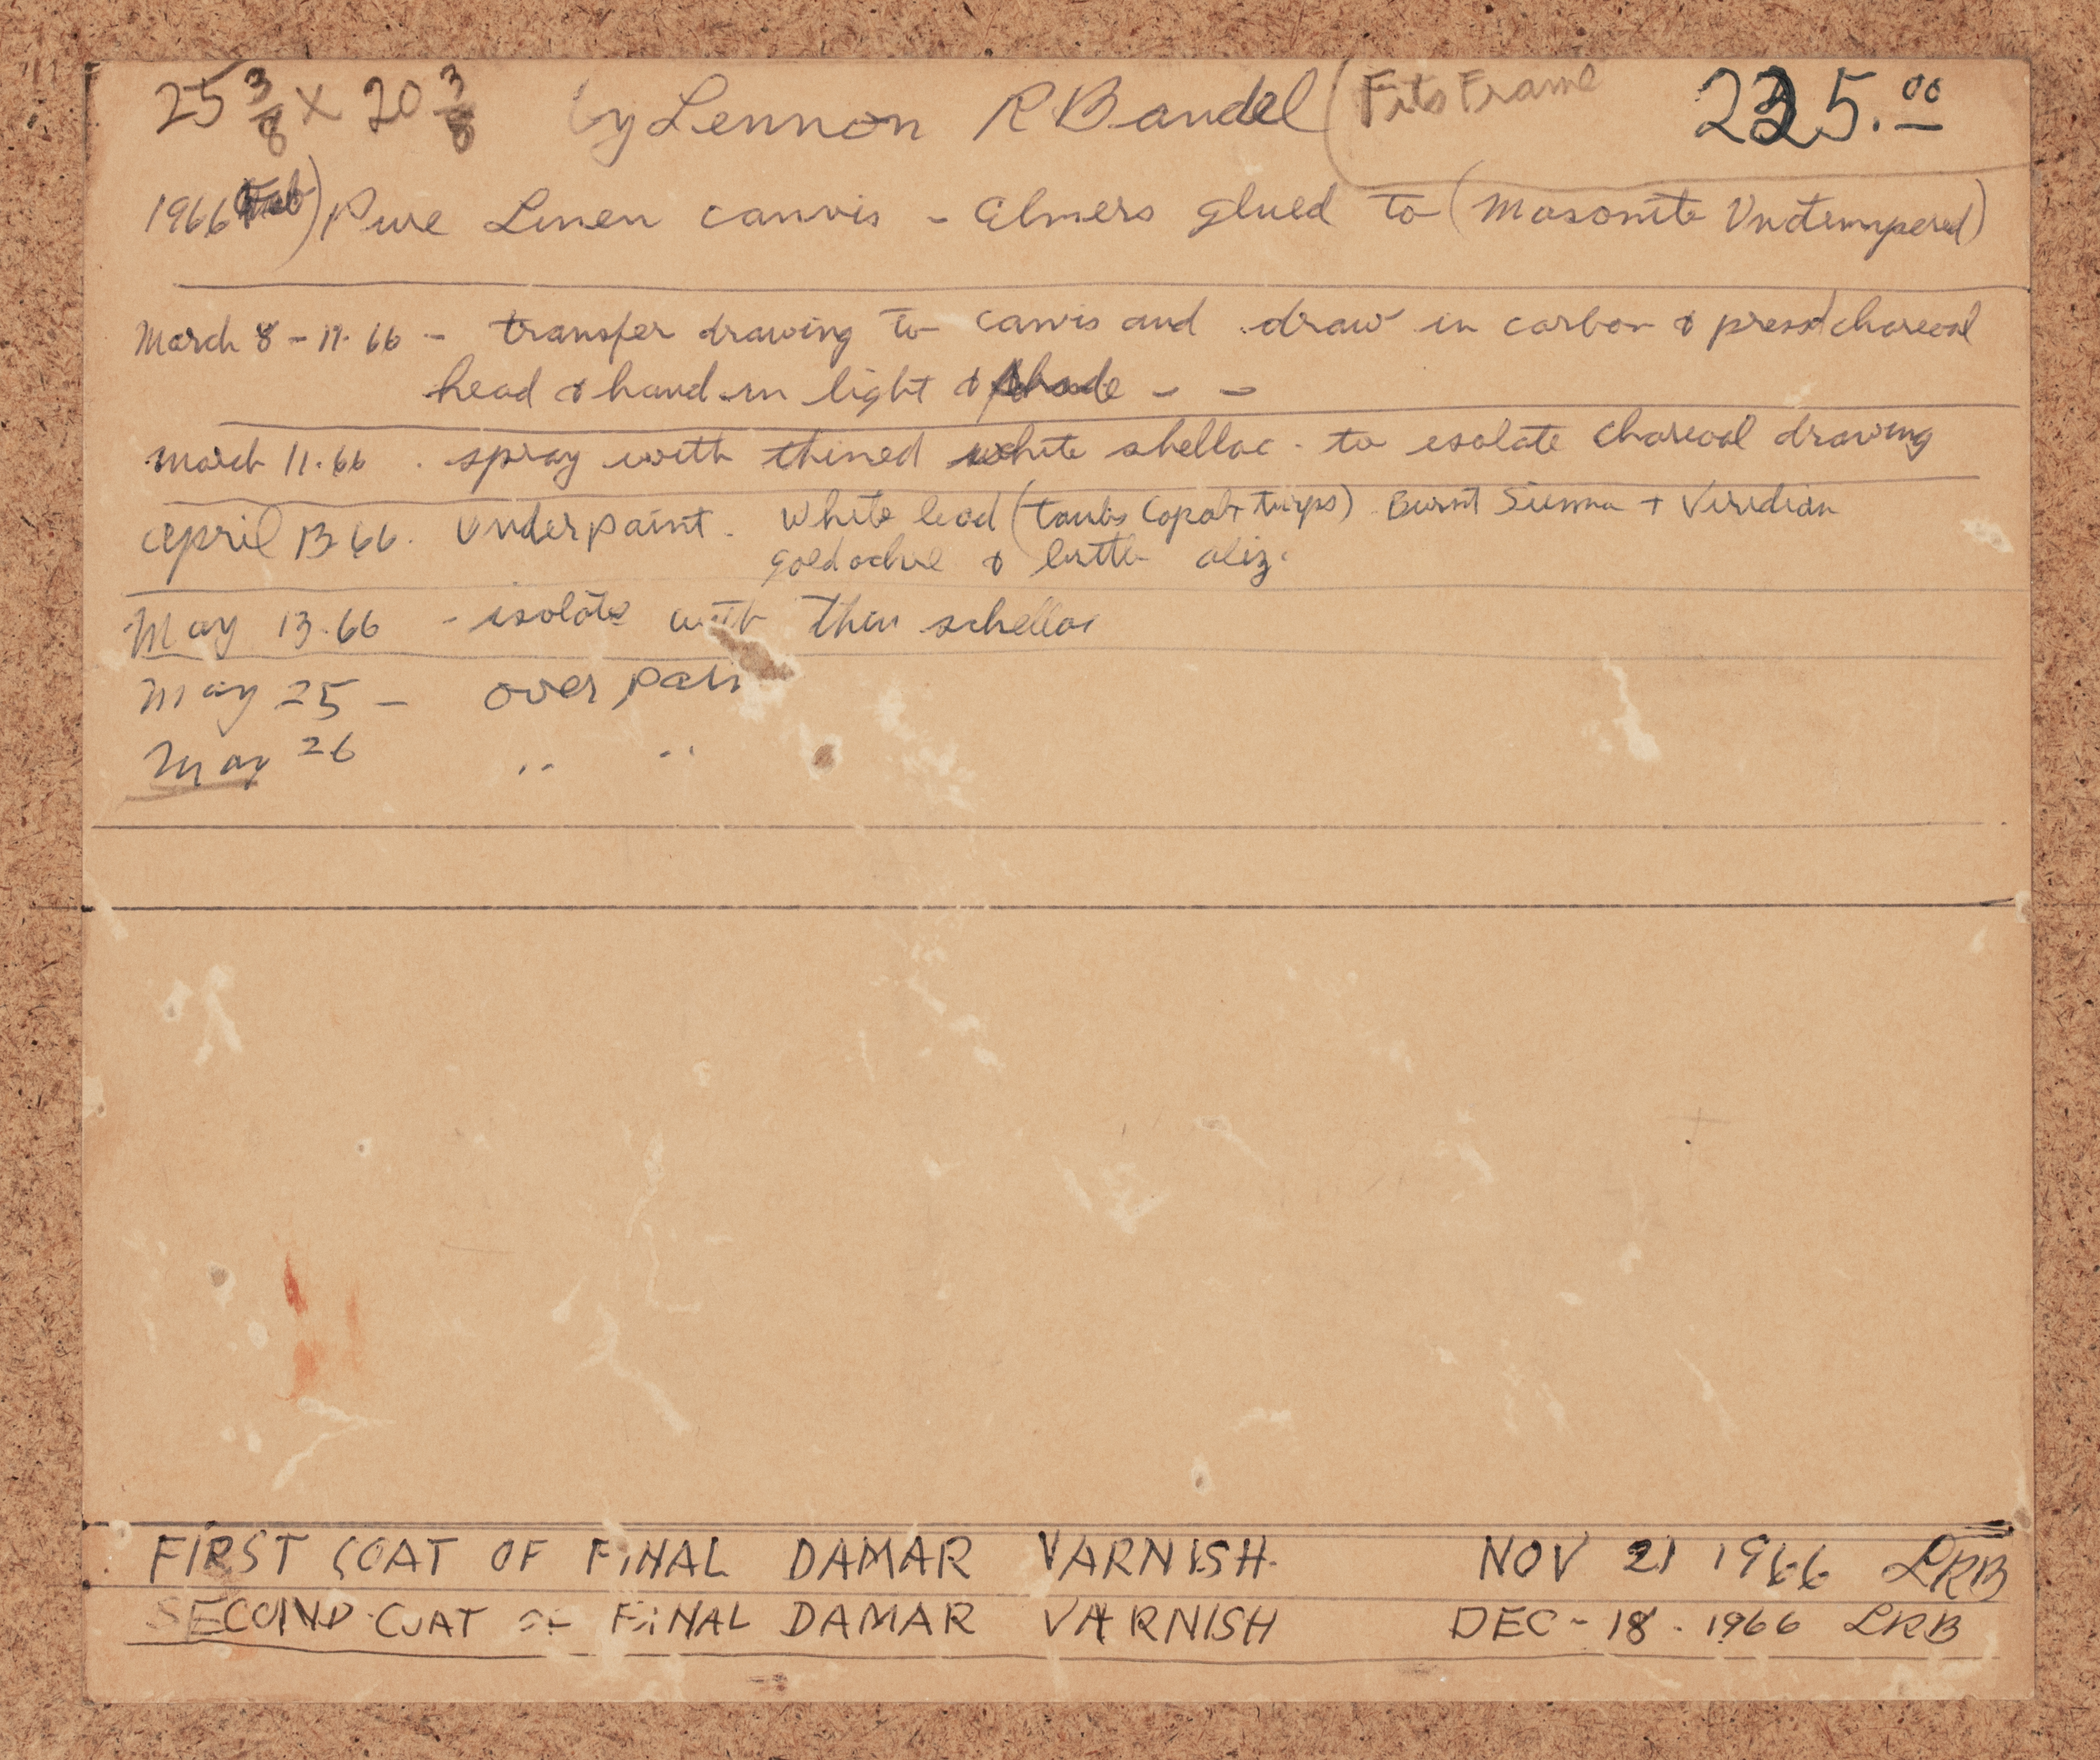 25 3/8 x 20 3/8 by Lennon R Bandel (Fits Frame 225.00
1966 Feb) Pure Linen canvis - Elmers glued to (Masonite Untempered)
March 8 - 11. 66 - transfer drawing to canvis and draw in carbon & press charcoal
head & hand in light & shade - -
March 11. 66 . spray with thined white shellac - to isolate charcoal drawing
April 13 66. Underpaint - White lead (Taubs Copal + turps) Burnt Sienna + Viridian
gold ochre & little aliz.
May 13. 66 - isolate with thin schellac
May 25 - over pain
May 26 " "
FIRST COAT OF FINAL DAMAR VARNISH. NOV 21 1966 LRB
SECOND COAT OF FINAL DAMAR VARNISH DEC - 18 . 1966 LRB